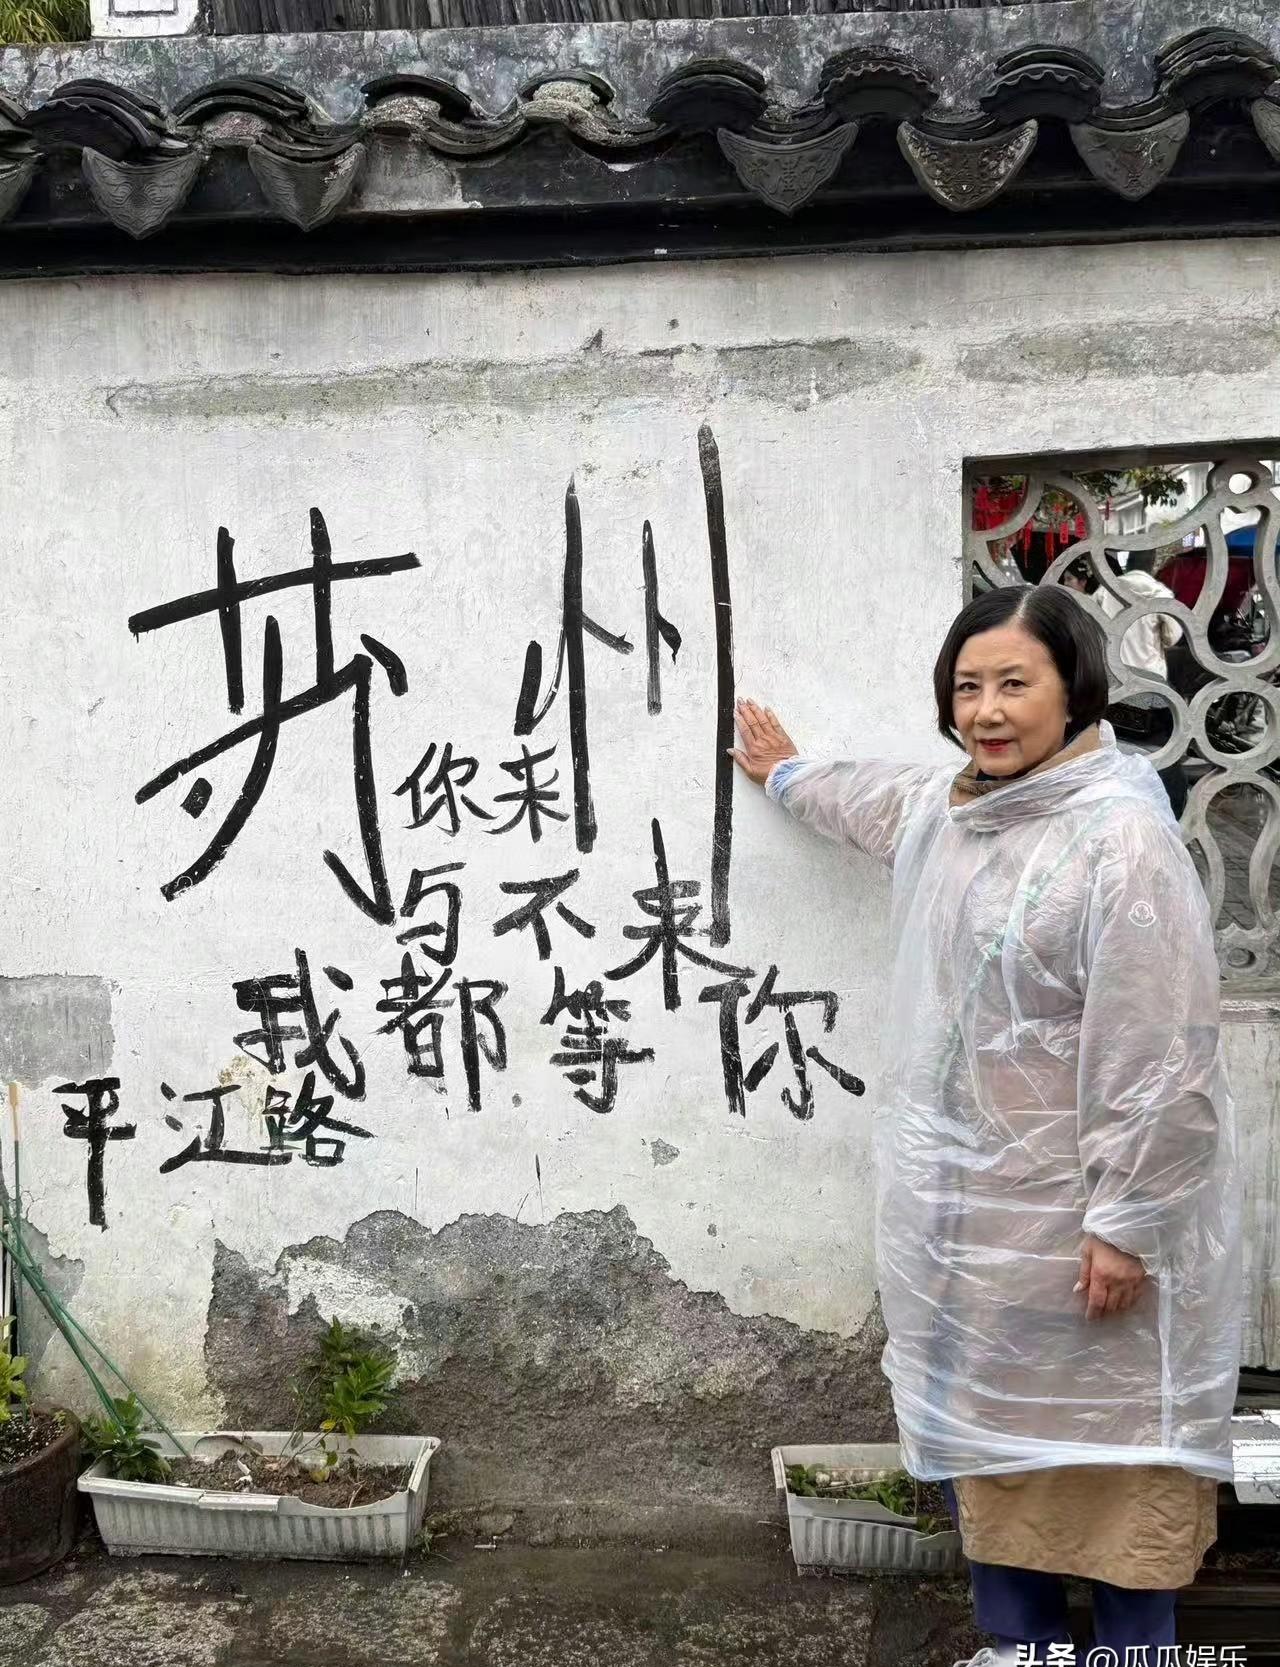 苏州
你来
与不来
我都等你
平江路
头条 @瓜瓜娱乐